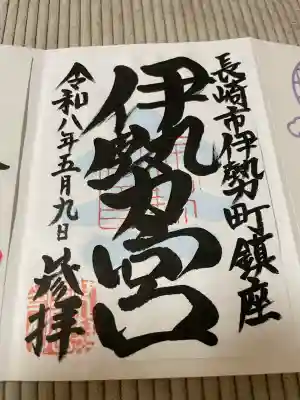 長崎市伊勢町鎮座
伊勢宮
令和八年五月九日
参拝